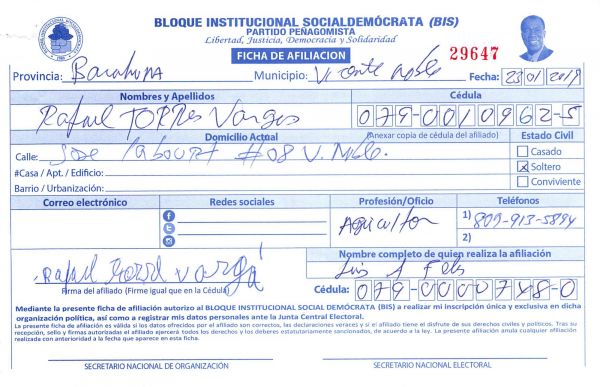 BLOQUE INSTITUCIONAL SOCIALDEMÓCRATA (BIS)
PARTIDO PEÑAGOMISTA
Libertad, Justicia, Democracia y Solidaridad
FICHA DE AFILIACION
29647
Provincia: Barahona Municipio: Vicente Noble Fecha: 23/01/2019
Nombres y Apellidos Cédula
Rafael TORRES Vargas 079-0010962-5
Domicilio Actual (Anexar copia de cédula del afiliado) Estado Civil
Calle: Jose Labourt #08 V. Noble. Casado
#Casa / Apt. / Edificio: x Soltero
Barrio / Urbanización: Conviviente
Correo electrónico Redes sociales Profesión/Oficio Teléfonos
Agricultor 1) 809-913-5894
2)
Nombre completo de quien realiza la afiliación
Rafael Torres Vargas Luis A Feliz
Firma del afiliado (Firme igual que en la Cédula) Cédula: 079-0000748-0
Mediante la presente ficha de afiliación autorizo al BLOQUE INSTITUCIONAL SOCIAL DEMÓCRATA (BIS) a realizar mi inscripción única y exclusiva en dicha
organización política, así como a registrar mis datos personales ante la Junta Central Electoral.
La presente ficha de afiliación es válida si los datos ofrecidos por el afiliado son correctos, las declaraciones veraces y si el afiliado tiene el disfrute de sus derechos civiles y políticos. Tras su
recepción, sello y firmas autorizadas el afiliado ejercerá todos los derechos y los deberes estatutariamente sancionados, de acuerdo a la ley. La presente afiliación anula cualquier afiliación
realizada con anterioridad a la fecha que aparece en esta ficha.
SECRETARIO NACIONAL DE ORGANIZACIÓN SECRETARIO NACIONAL ELECTORAL